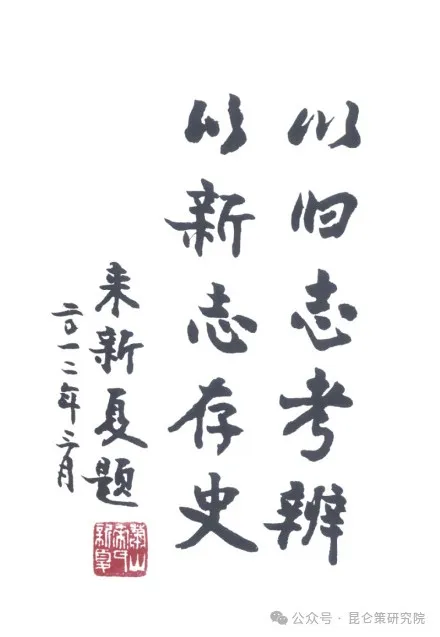 以旧志考辨
以新志存史
来新夏题
二〇一二年三月
萧山
来氏
新夏
公众号·昆仑策研究院